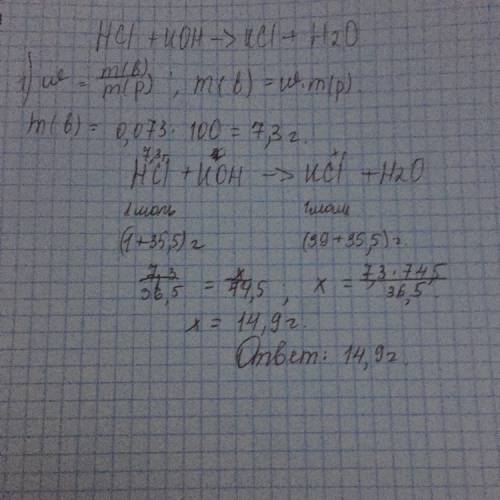 HCl + KOH -> KCl + H2O
1) w = m(в)/m(р) ; m(в) = w·m(р).
m(в) = 0,073 · 100 = 7,3 г.
7,3 г x
HCl + KOH -> KCl + H2O
1 моль 1 моль
(1+35,5) г (39+35,5) г.
7,3/36,5 = x/74,5 ; x = 7,3·74,5/36,5
x = 14,9 г.
Ответ: 14,9 г.